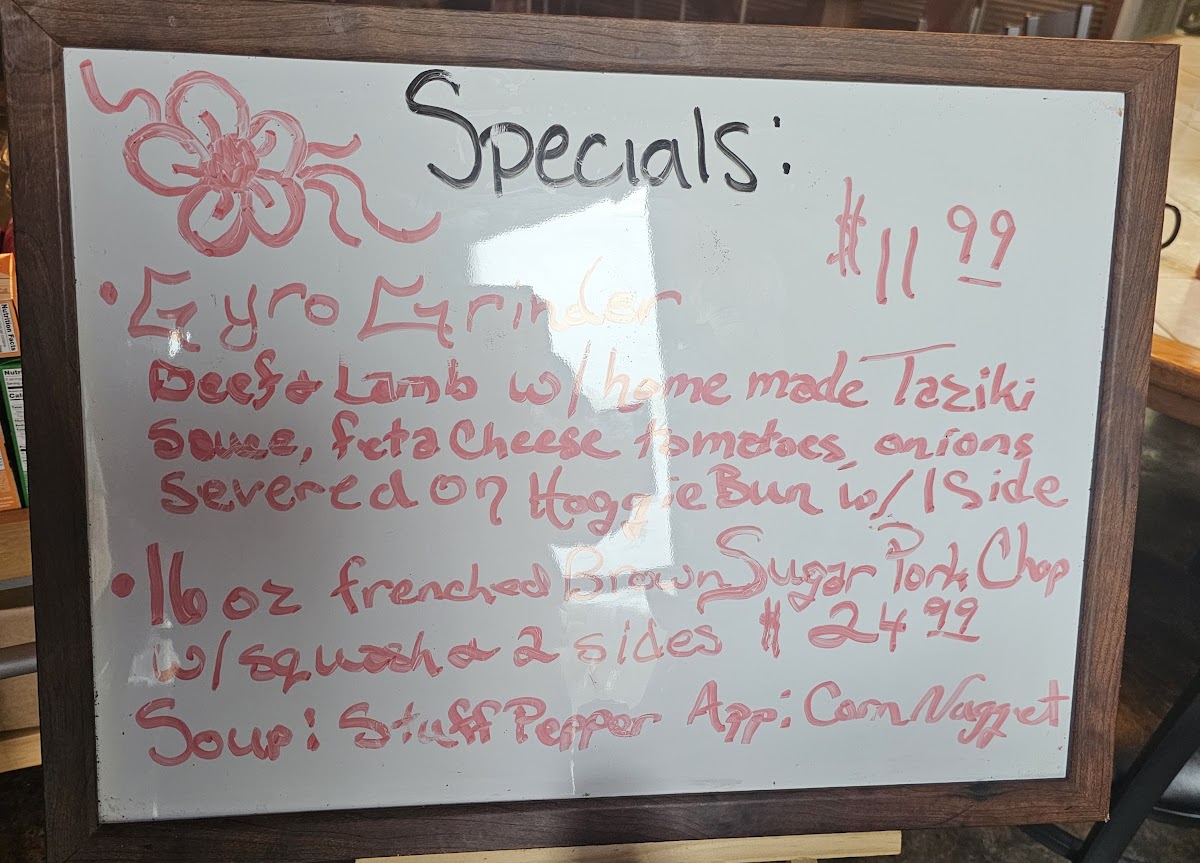 Specials:
$11 99
• Gyro Grinder
Beef & Lamb w/ home made Taziki
Sauce, feta Cheese tomatoes, onions
Severed on Hoggie Bun w/ 1 Side
• 16 oz frenched Brown Sugar Pork Chop
w/ squash & 2 sides $24 99
Soup: Stuff Pepper App: Corn Nugget
Nutrition Facts